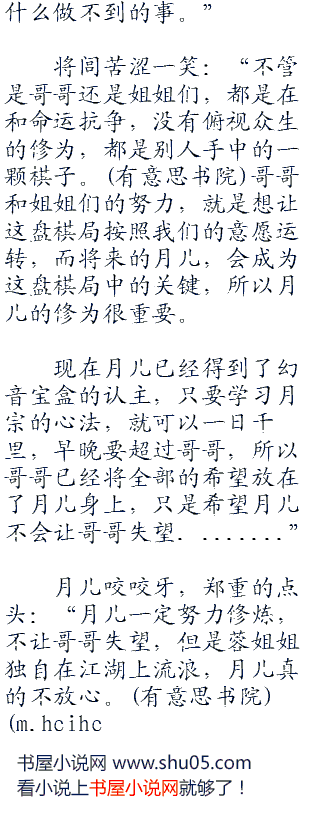 什么做不到的事。”
将闾苦涩一笑：“不管
是哥哥还是姐姐们，都是在
和命运抗争，没有俯视众生
的修为，都是别人手中的一
颗棋子。(有意思书院)哥哥
和姐姐们的努力，就是想让
这盘棋局按照我们的意愿运
转，而将来的月儿，会成为
这盘棋局中的关键，所以月
儿的修为很重要。
现在月儿已经得到了幻
音宝盒的认主，只要学习月
宗的心法，就可以一日千
里，早晚要超过哥哥，所以
哥哥已经将全部的希望放在
了月儿身上，只是希望月儿
不会让哥哥失望........”
月儿咬咬牙，郑重的点
头：“月儿一定努力修炼，
不让哥哥失望，但是蓉姐姐
独自在江湖上流浪，月儿真
的不放心。(有意思书院)
(m.hcihc
书屋小说网 www.shu05.com
看小说上书屋小说网就够了！